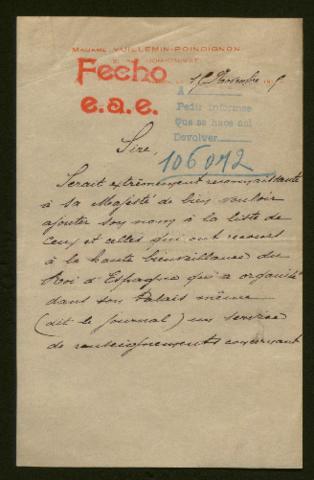 MADAME VUILLEMIN-POINDIGNON
Fecho
e.a.e.
15 Novembre
A
Pedir informes
Que se hace así
Devolver
106042
Sire,
Serait extrêmement reconnaissante
à sa Majesté de bien vouloir
ajouter son nom à la liste de
ceux et celles qui ont recours
à la haute bienveillance du
Roi d'Espagne qui a organisé
dans son Palais même
(dit le journal) un service
de renseignements concernant